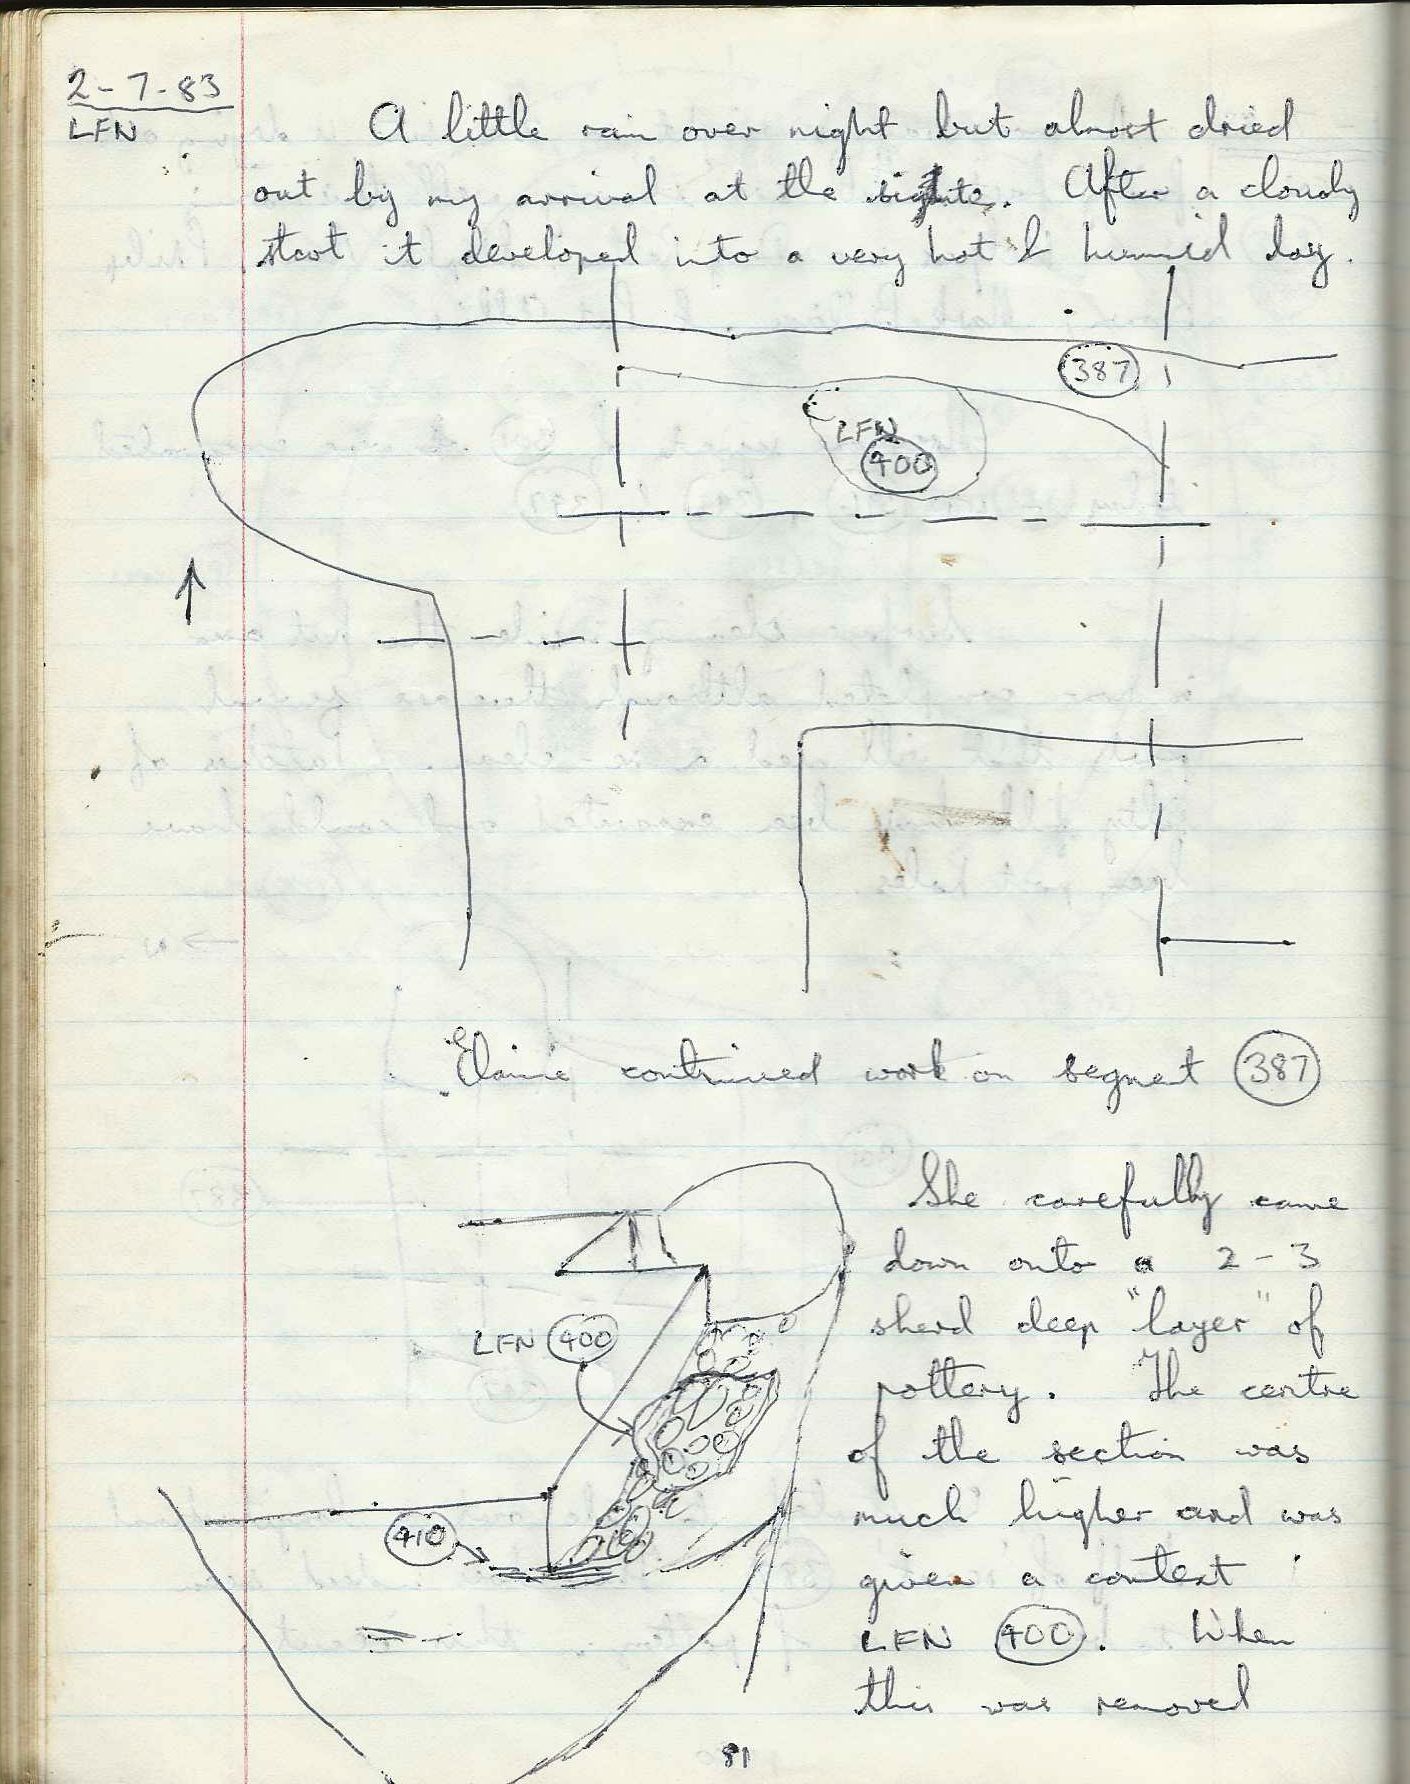 2-7-83
LFN
A little rain over night but almost dried
out by my arrival at the site. After a cloudy
start it developed into a very hot & humid day.
387
LFN
400
Elaine continued work on segment 387
She carefully came
down onto a 2-3
sherd deep "layer" of
pottery. The centre
of the section was
much higher and was
given a context
LFN 400. When
this was removed
LFN 400
410
81